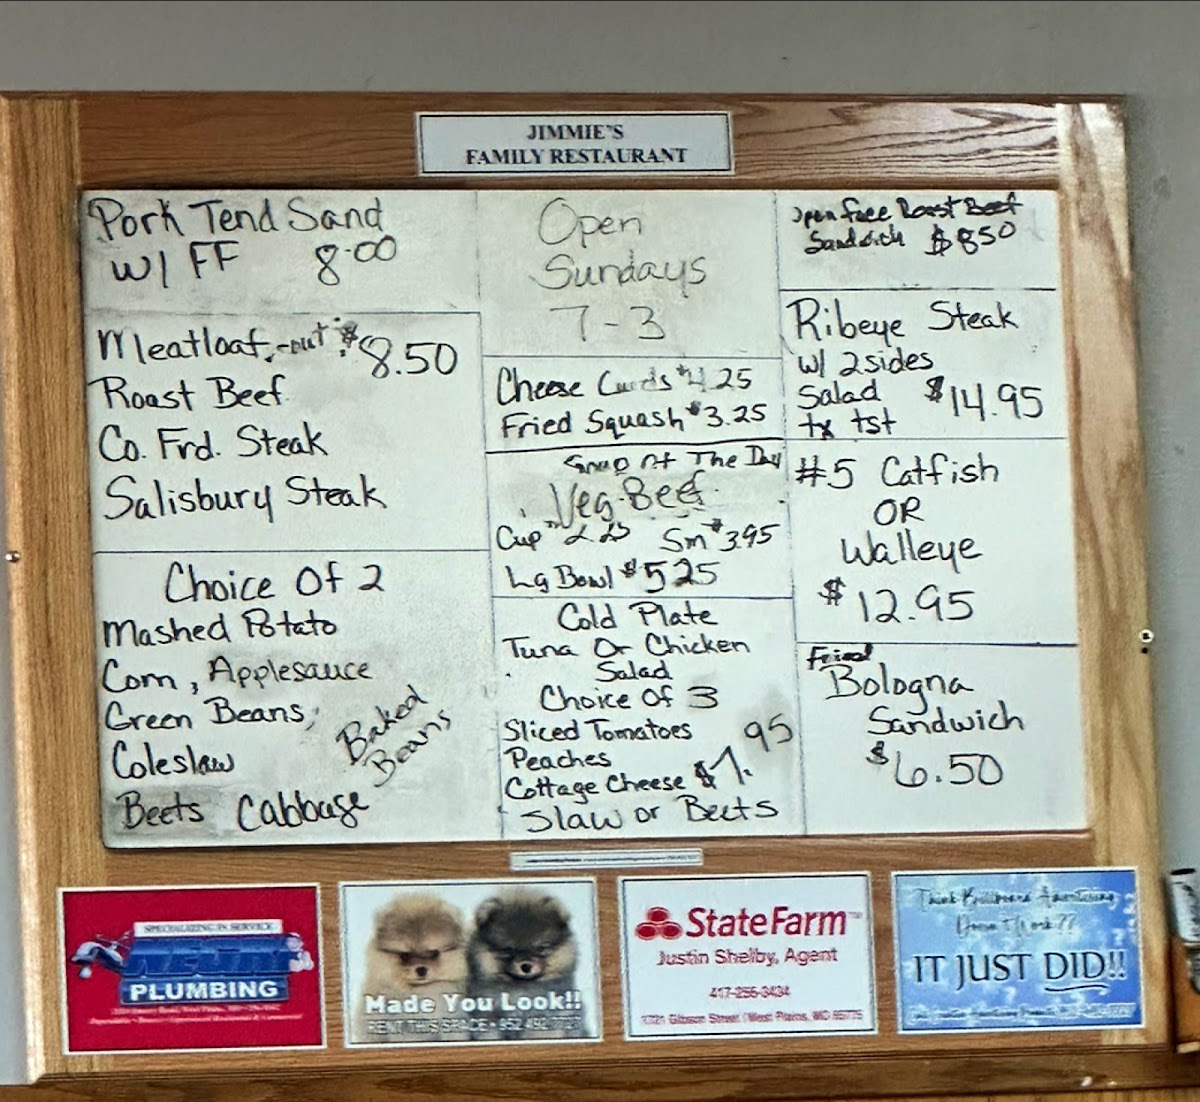 JIMMIE'S
FAMILY RESTAURANT
Pork Tend Sand
W/ FF 8.00
Meatloaf -out $8.50
Roast Beef
Co. Frd. Steak
Salisbury Steak
Choice Of 2
Mashed Potato
Corn, Applesauce
Green Beans,
Coleslaw
Baked
Beans
Beets Cabbage
Open
Sundays
7-3
Cheese Curds $4.25
Fried Squash $3.25
Soup Of The Day
Veg-Beef
Cup 2.25 Sm $3.95
Lg Bowl $5.25
Cold Plate
Tuna Or Chicken
Salad
Choice Of 3
Sliced Tomatoes
Peaches
Cottage Cheese $7.95
Slaw or Beets
Open face Roast Beef
Sandwich $8.50
Ribeye Steak
w/ 2 sides
Salad $14.95
tx tst
#5 Catfish
OR
Walleye
$12.95
Fried
Bologna
Sandwich
$6.50
SPECIALIZING IN SERVICE
PLUMBING
Made You Look!!
RENT THIS SPACE
StateFarm™
Justin Shelby, Agent
417-256-3434
1721 Gibson Street | West Plains, MO 65775
Think Billboard Advertising
Doesn't Work??
IT JUST DID!!